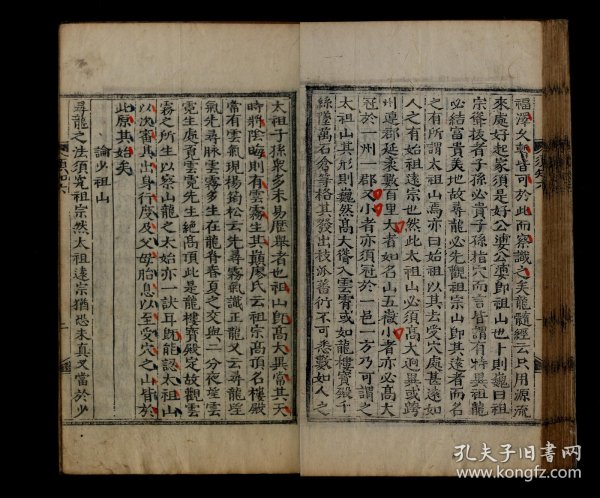 福深久暫皆可於此而察識之矣龍髓經云只用源流
來處好起家須是好公婆公婆即祖山也卜則巍曰祖
宗聳拔者子孫必貴子孫指穴而言皆謂有特異祖龍
必結富貴美地故尋龍必先觀祖宗山即其遠者而名
之有所謂太祖山焉亦曰始祖以其去受穴處甚遠如
人之有始祖遠宗也然此太祖山必須高大迥異或跨
州連郡延袤數百里大者如名山五嶽小者亦必
冠於一州一郡又小者亦須冠於一邑一方乃可謂之
太祖山其形則巍然高大聳入雲霄或如龍樓寶殿千
絲墜萬石倉等格其發出枝派蕃衍不可悉數如人之
太祖子孫衆多未易歷舉者也祖山旣高大異常其天
時將陰晦則有雲霧生其巔廖氏云祖宗高頂名樓殿
常有雲氣現楊筠松云先尋霧氣識正龍又云尋龍望
氣先尋脉雲霧多生在龍脊春夏之交與二分夜望雲
霓生處貢雲霓先生絕高頂此是龍樓寶殿定故觀雲
霧之所生以察山龍之太始亦一訣耳旣能認太祖山
以次審其出身行度及父母胎息以至受穴之山皆於
此原其始矣
論少祖山
尋龍之法須究祖宗然太祖遠宗猶恐未真又當於少
孔夫子旧書网
www.kongfz.com